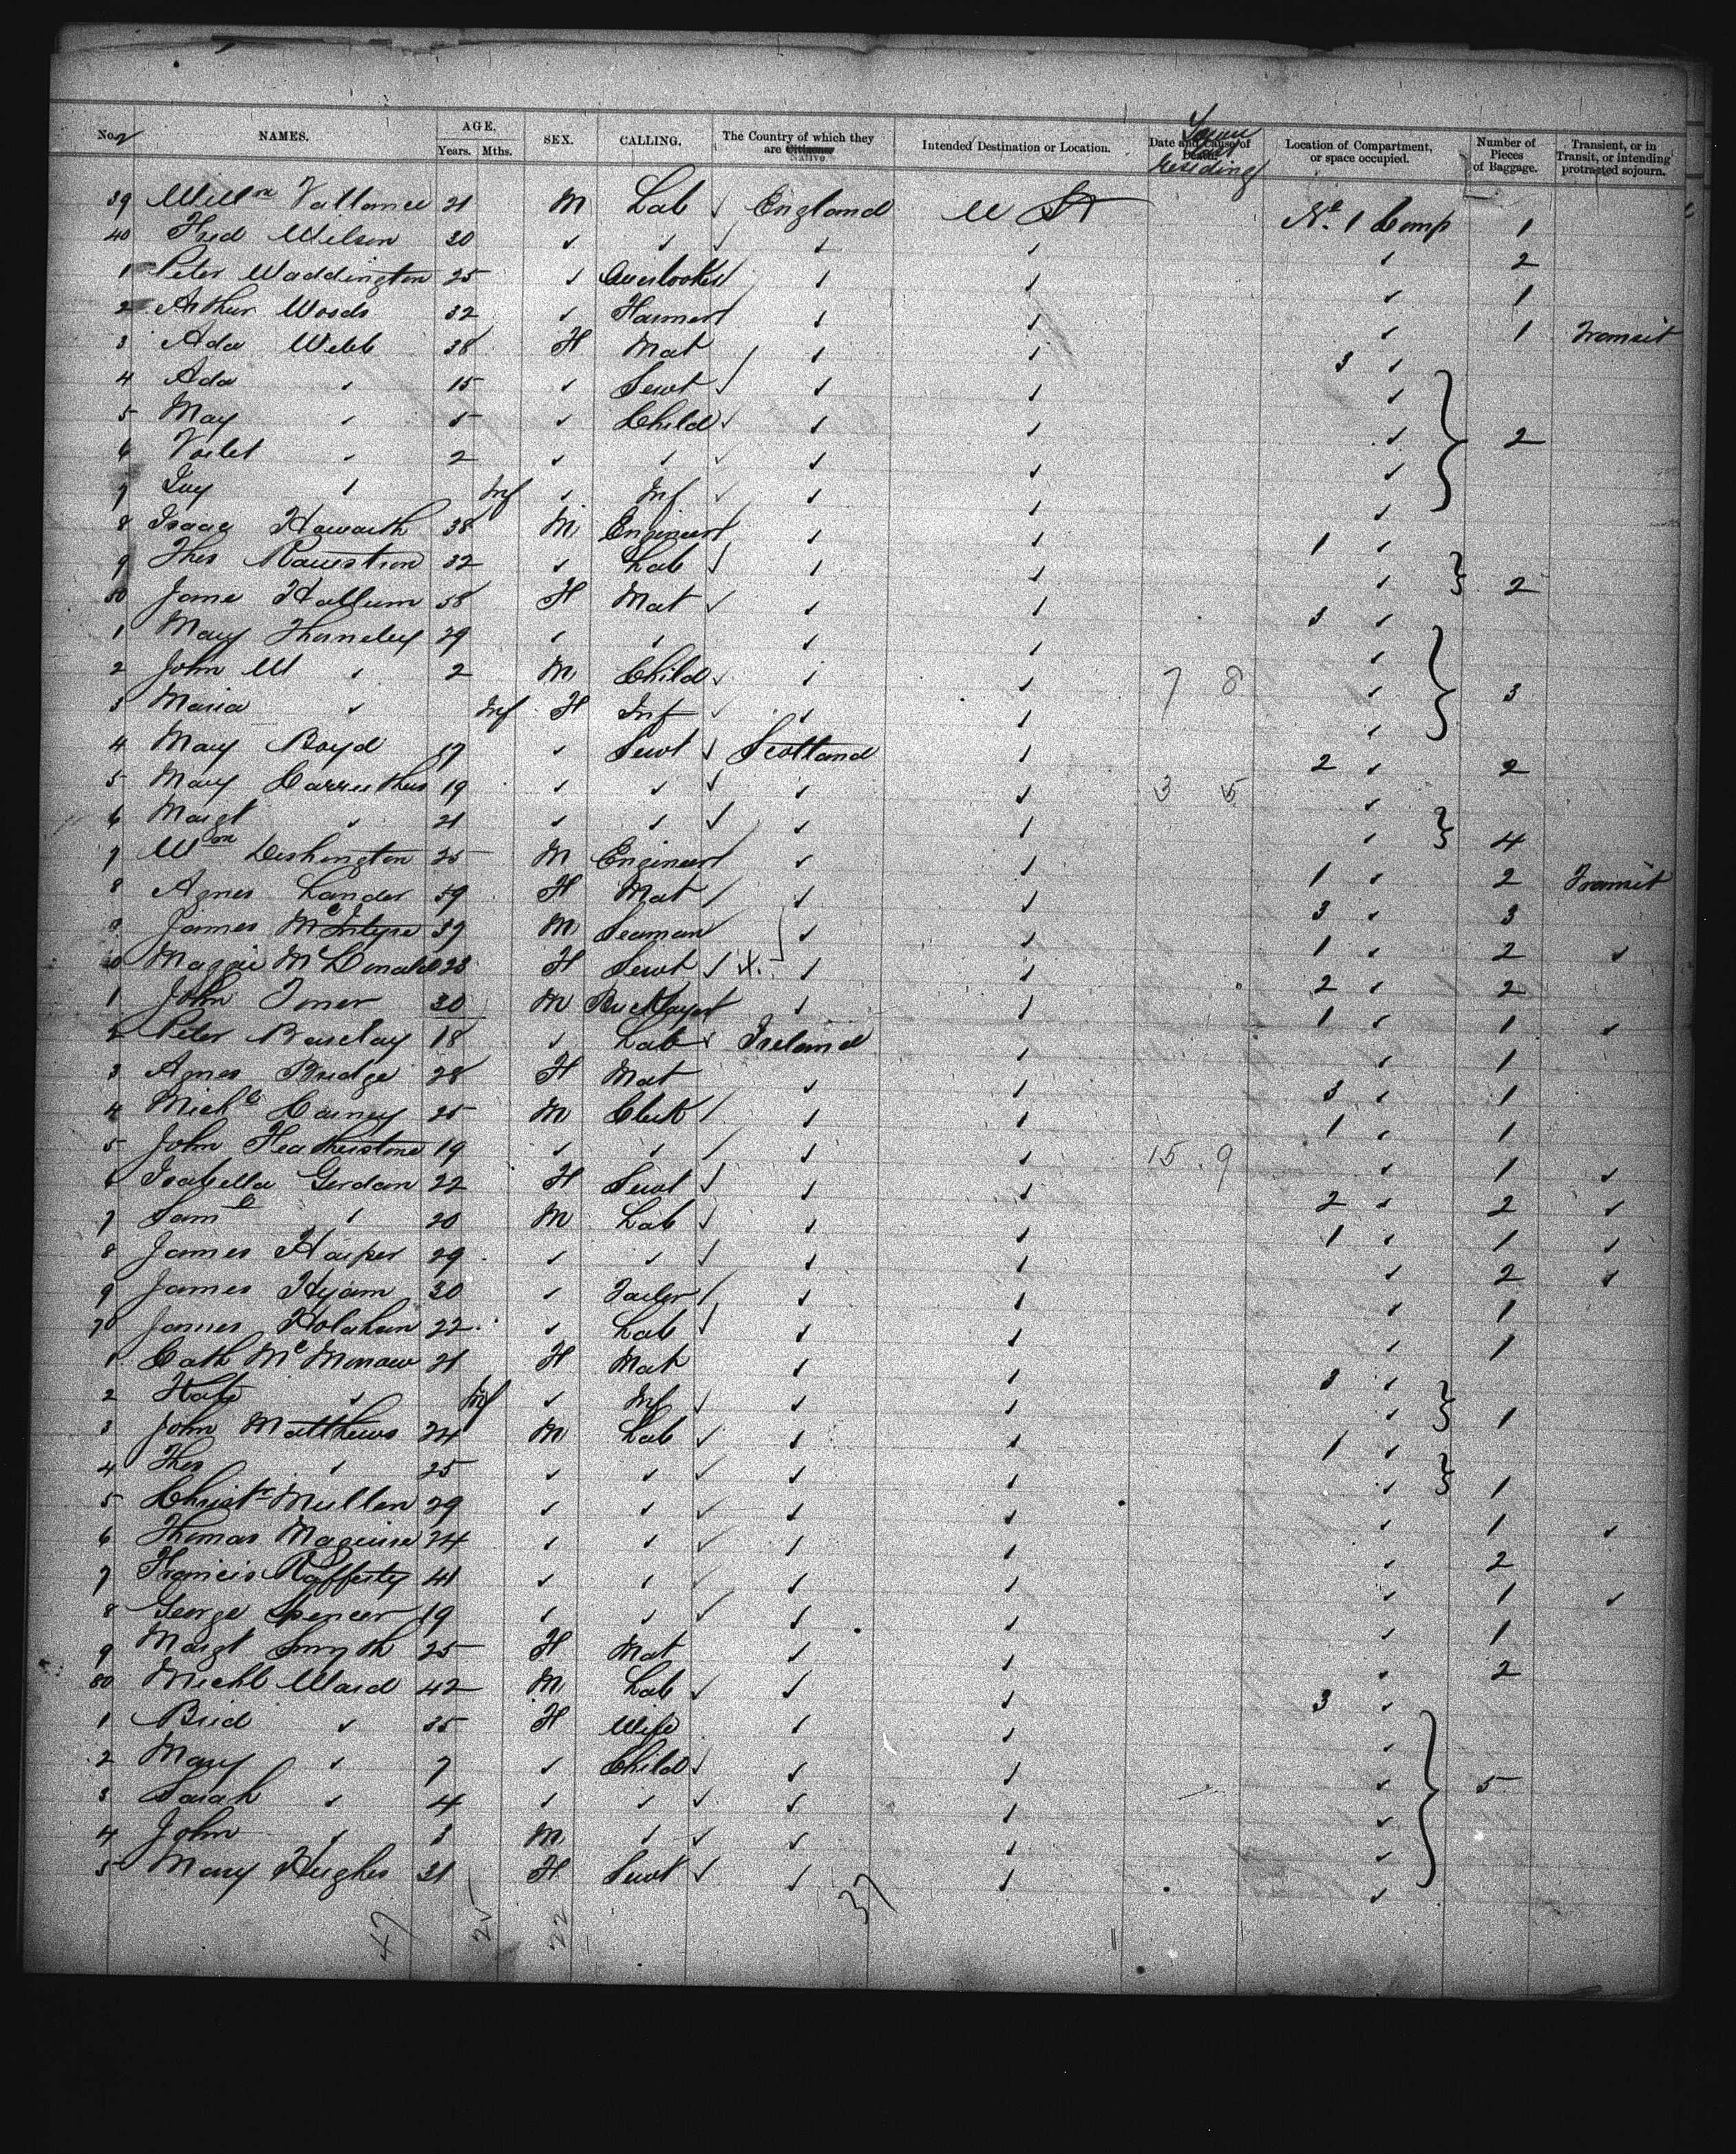 No. NAMES. AGE. Years. Mths. SEX. CALLING. The Country of which they are Citizens Native Intended Destination or Location. Date and Cause of Death. residing Location of Compartment, or space occupied. Number of Pieces of Baggage. Transient, or in Transit, or intending protracted sojourn.
39 Willm Vallance 21 M Lab England U St No. 1 Comp 1
40 Fred Wilson 20 2
1 Peter Waddington 25 Overlooker 1
2 Arthur Woods 32 Farmer 1 Transit
3 Ada Webb 38 F Mat 3
4 Ada 15 Servt
5 May 5 Child 2
6 Voilet 2
7 Ivy Inf Inf
8 Isaac Haworth 38 M Engineer 1
9 Thos 32 Lab 2
50 Jane Hallum 58 F Mat 3
1 Mary 29
2 John W 2 M Child 7 8 3
3 Maria Inf F Inf
4 Mary Boyd 17 Servt Scotland 2 2
5 Mary Carruthers 19 3 5
6 Margt 21 4
7 Wm Dishington 25 M Engineer 1 2 Transit
8 Agnes Lander 59 F Mat 3 3
9 James McIntyre 39 M Seaman 1 2
0 Maggie McDonald 23 F Servt 2 2
1 John 30 M Bricklayer 1 1
2 Peter Barclay 18 Lab Ireland 1
3 Agnes Bridge 28 F Mat 3 1
4 Michl Cainey 25 M Clerk 1 1
5 John Featherstone 19 15 9 1
6 Isabella Gordan 22 F Servt 2 2
7 Saml 20 M Lab 1 1
8 James Harper 29 2
9 James Hyam 30 Tailor 1
70 James Holahan 22 Lab 1
1 Cath 21 F Mat 3
2 Kate Inf Inf 1
3 John Matthews 24 M Lab 1
4 Thos 25 1
5 Christr Mullen 29 1
6 Thomas Maguire 24 2
7 Francis Rafferty 41 1
8 George Spencer 19 1
9 Margt Smyth 25 F Mat 2
80 Michl Ward 42 M Lab 3
1 Brid 35 F Wife
2 Mary 7 Child
3 Sarah 4 5
4 John 3 M
5 Mary Hughes 21 F Servt
47 25 22 37